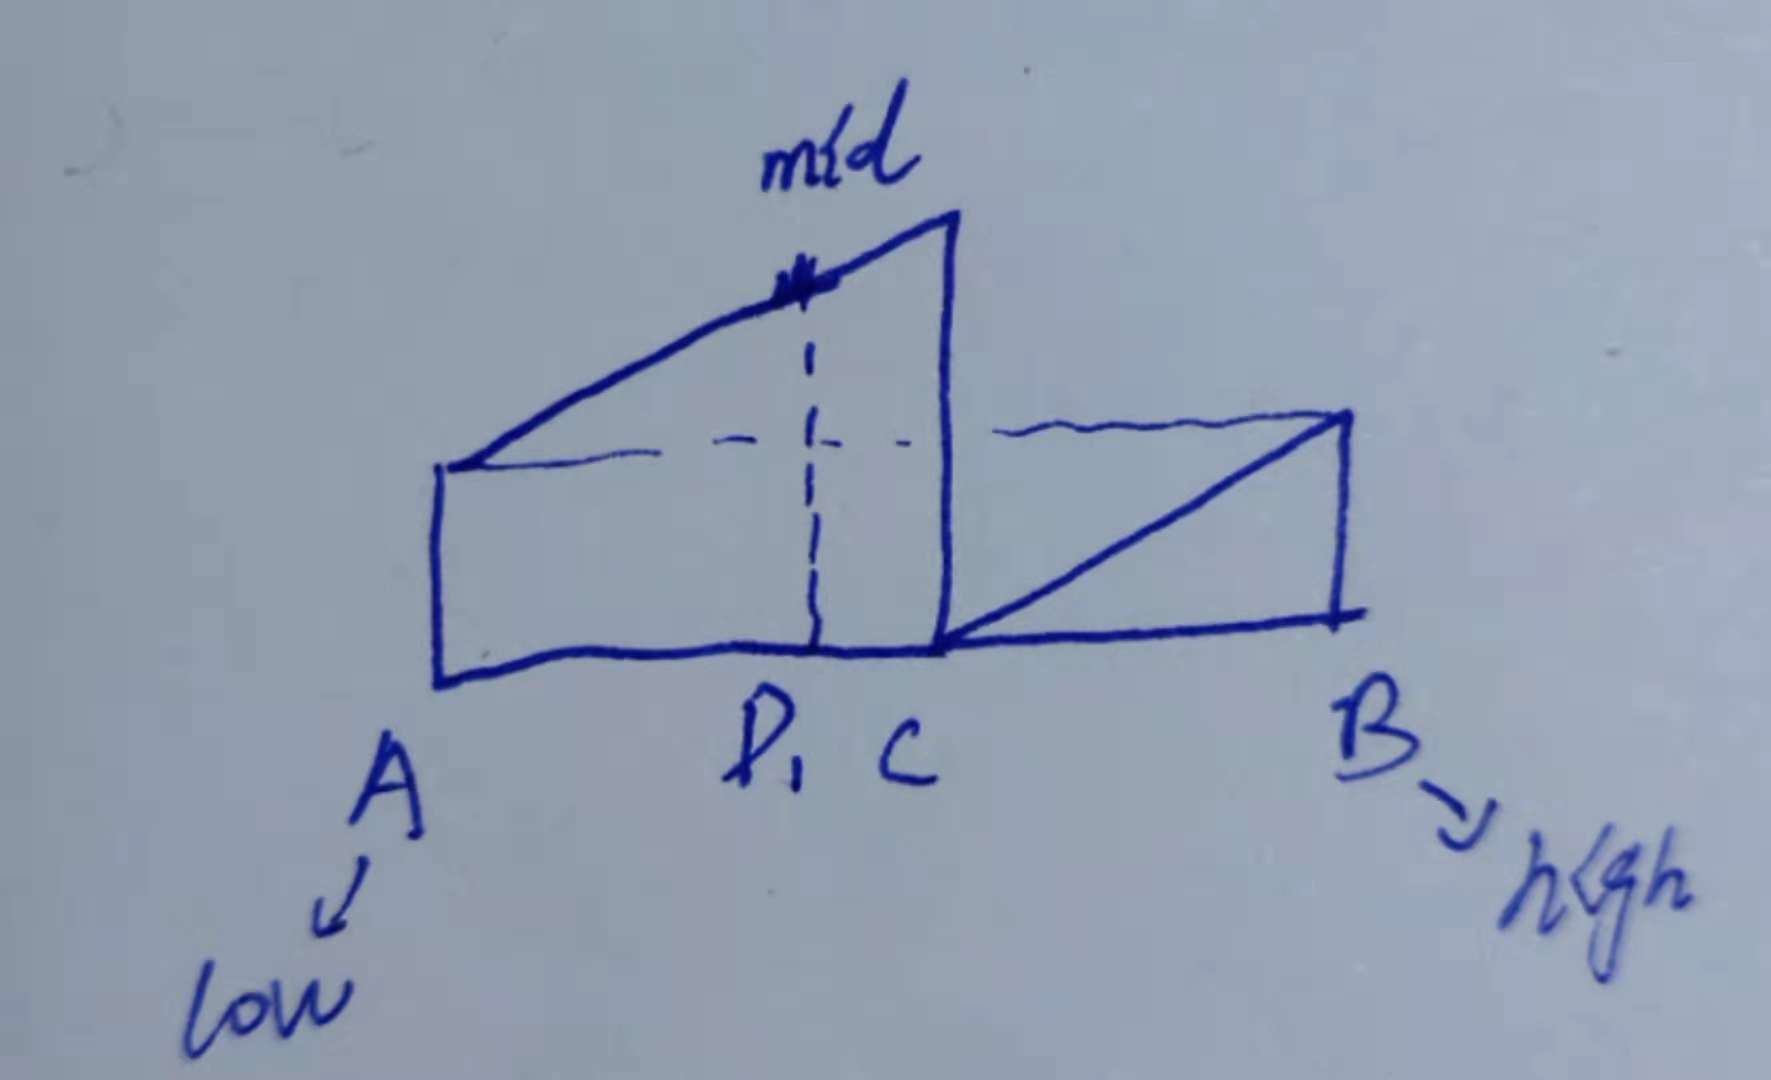 mid
A P1 C B
low
high